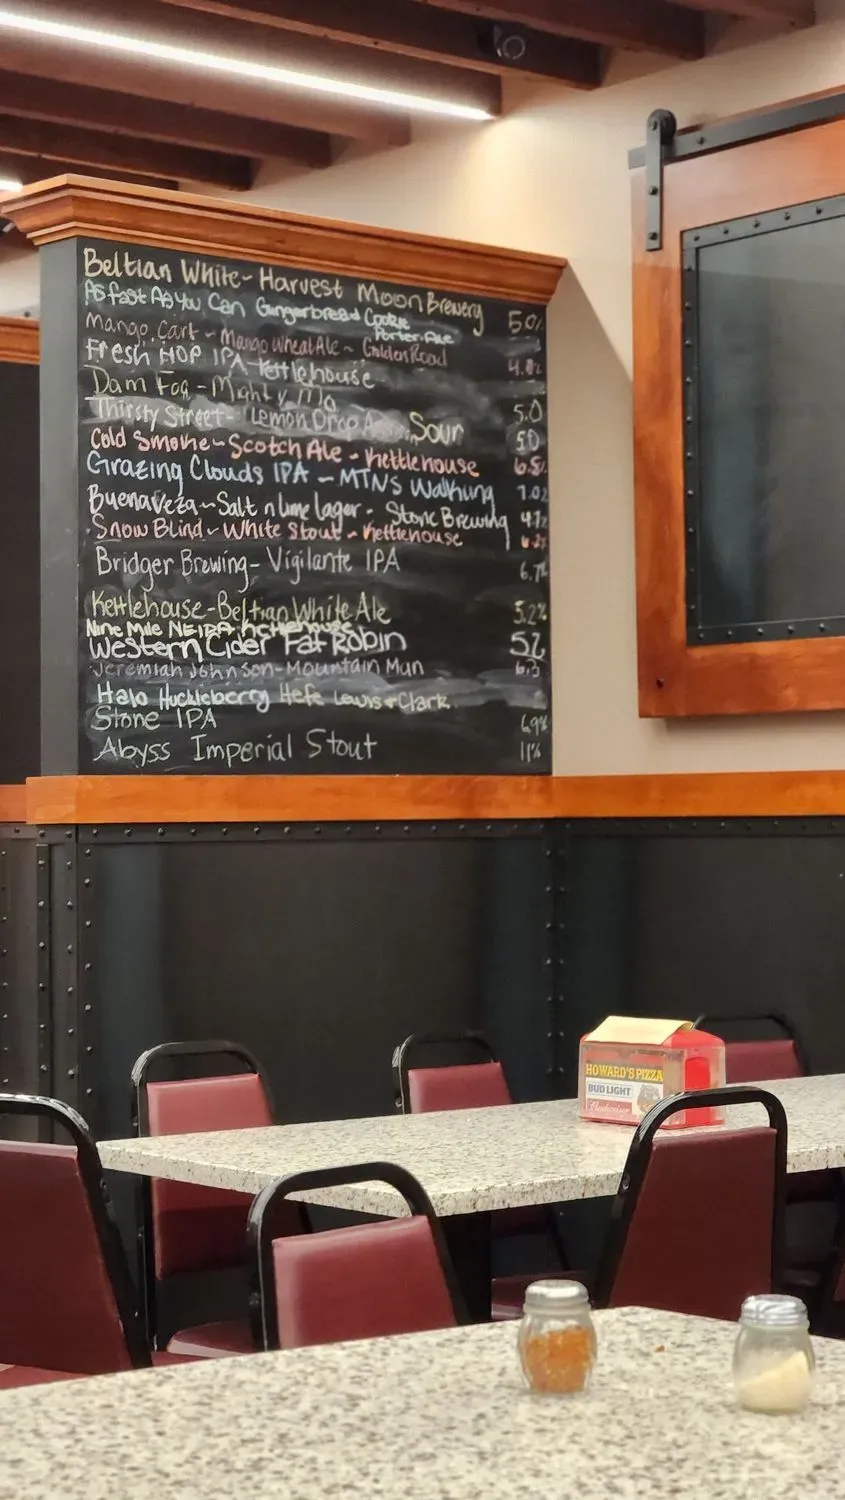 Beltian White - Harvest Moon Brewery 5.0%
As Fast As You Can Gingerbread Cookie
Porter Ale
Mango Cart - Mango Wheat Ale - Golden Road 4.0%
Fresh HOP IPA - Kettlehouse
Dam Fog - Mighty Mo 5.0
Thirsty Street - Lemon Drop Sour 5.0
Cold Smoke - Scotch Ale - Kettlehouse 6.5%
Grazing Clouds IPA - MTNS Walking 7.0%
Buenaveza - Salt n lime lager - Stone Brewing 4.7%
Snow Blind - White Stout - Kettlehouse
Bridger Brewing - Vigilante IPA 6.7%
Kettlehouse - Beltian White Ale 5.2%
Nine Mile NEIPA Kettlehouse
Western Cider Fat Robin
Jeremiah Johnson - Mountain Man 6.3
Halo Huckleberry Hefe Lewis + Clark
Stone IPA 6.9%
Abyss Imperial Stout 11%
HOWARD'S PIZZA
BUD LIGHT
Budweiser